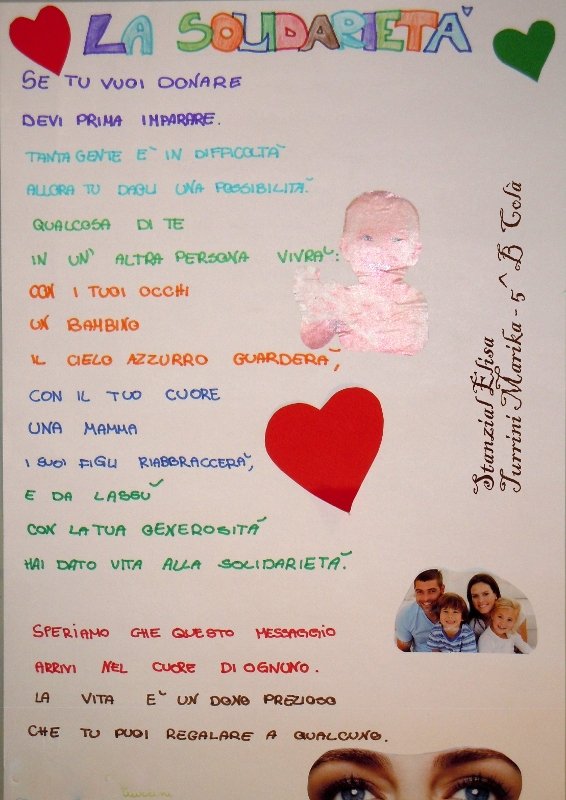 LA SOLIDARIETÀ
SE TU VUOI DONARE
DEVI PRIMA IMPARARE.
TANTA GENTE È IN DIFFICOLTÀ
ALLORA TU DAGLI UNA POSSIBILITÀ.
QUALCOSA DI TE
IN UN' ALTRA PERSONA VIVRÀ:
CON I TUOI OCCHI
UN BAMBINO
IL CIELO AZZURRO GUARDERÀ,
CON IL TUO CUORE
UNA MAMMA
I SUOI FIGLI RIABBRACCERÀ,
E DA LASSÙ
CON LA TUA GENEROSITÀ
HAI DATO VITA ALLA SOLIDARIETÀ.
SPERIAMO CHE QUESTO MESSAGGIO
ARRIVI NEL CUORE DI OGNUNO.
LA VITA È UN DONO PREZIOSO
CHE TU PUOI REGALARE A QUALCUNO.
Stanzial Elisa
Turrini Marika - 5^ B Colà